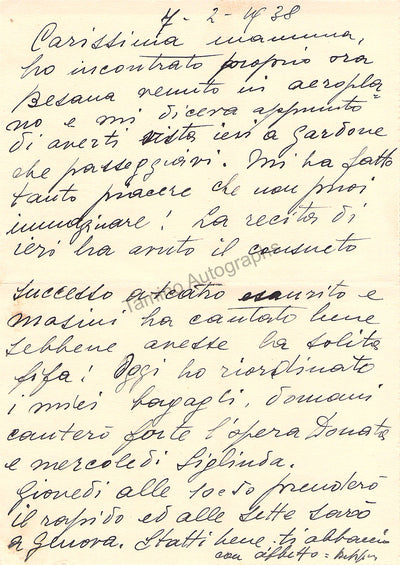 7-2-1938
Carissima mamma,
ho incontrato proprio ora
Besana venuto in aeropla=
no e mi diceva appunto
di averti vista ieri a Gardone
che passeggiavi. Mi ha fatto
tanto piacere che non puoi
immaginare! La recita di
ieri ha avuto il consueto
successo a teatro esaurito e
Masini ha cantato bene
sebbene avesse la solita
fifa! Oggi ho riordinato
i miei bagagli, domani
canterò forse l'opera Donata
e mercoledì Siglinda.
Giovedì alle prenderò
il rapido ed alle sette sarò
a Genova. Statti bene ti abbraccio
con affetto =
Tamino Autographs